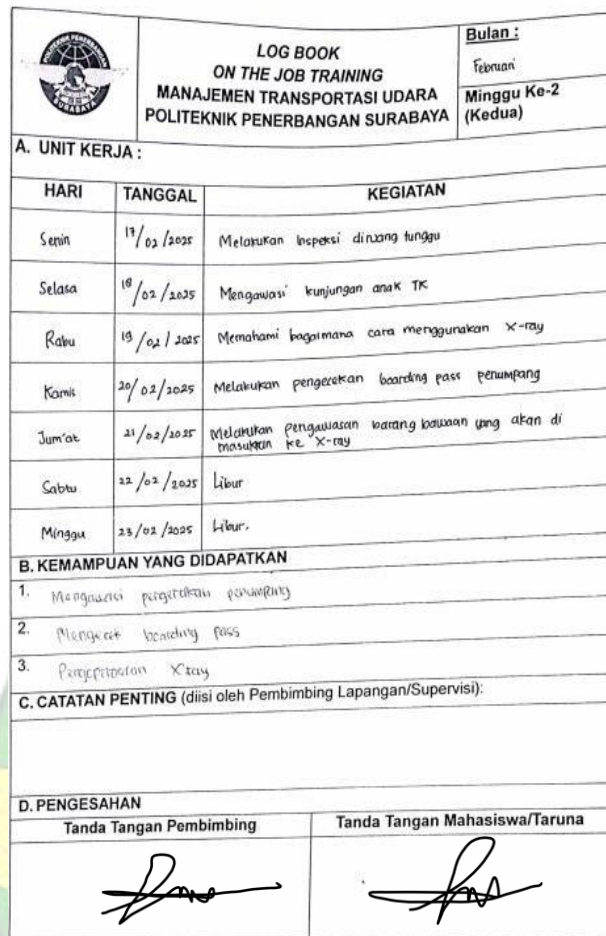 POLITEKNIK PENERBANGAN
SURABAYA
LOG BOOK
ON THE JOB TRAINING
MANAJEMEN TRANSPORTASI UDARA
POLITEKNIK PENERBANGAN SURABAYA
Bulan :
Februari
Minggu Ke-2
(Kedua)
A. UNIT KERJA :
HARI TANGGAL KEGIATAN
Senin 17/02/2025 Melakukan Inspeksi diruang tunggu
Selasa 18/02/2025 Mengawasi kunjungan anak TK
Rabu 19/02/2025 Memahami bagaimana cara menggunakan X-ray
Kamis 20/02/2025 Melakukan pengecekan boarding pass penumpang
Jum'at 21/02/2025 Melakukan pengawasan barang bawaan yang akan di
masukkan ke X-ray
Sabtu 22/02/2025 Libur
Minggu 23/02/2025 Libur.
B. KEMAMPUAN YANG DIDAPATKAN
1. Mengawasi pergerakan penumpang
2. Mengecek boarding pass
3. Pengoperasian X-ray
C. CATATAN PENTING (diisi oleh Pembimbing Lapangan/Supervisi):
D. PENGESAHAN
Tanda Tangan Pembimbing Tanda Tangan Mahasiswa/Taruna